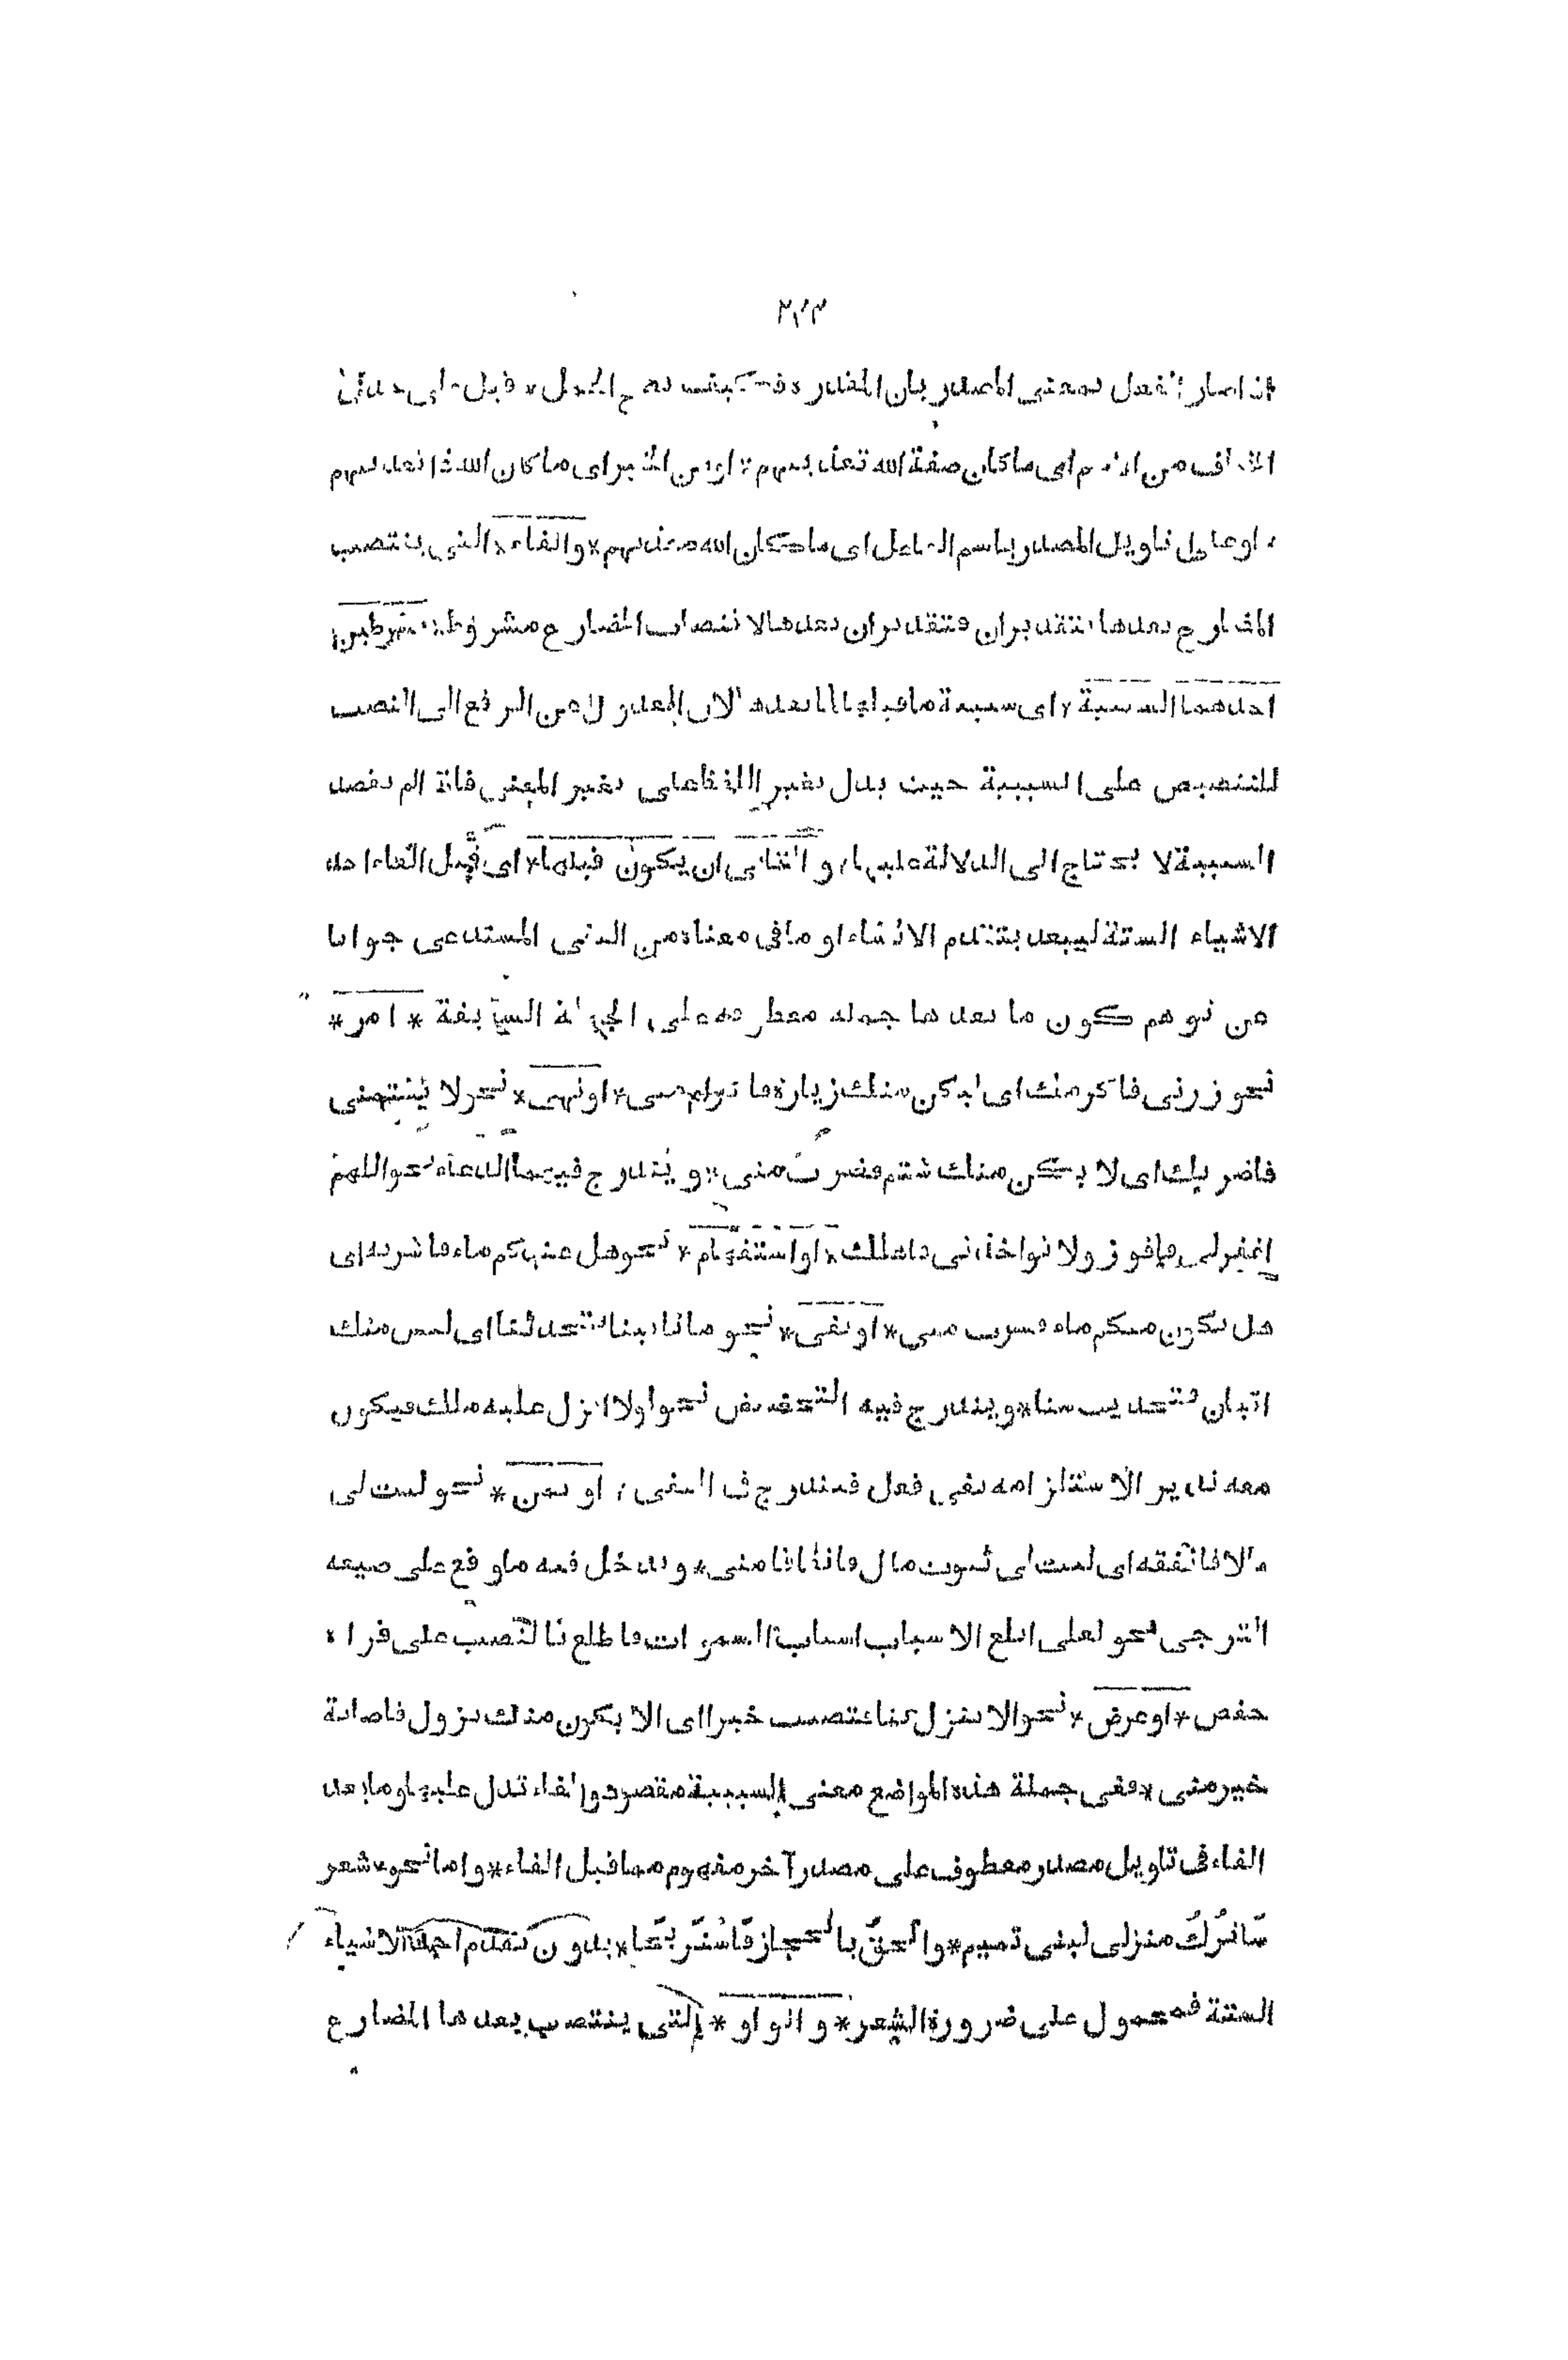 اذا صار الفعل بمعنى المصدر بان المقدرة فكيف يصح الحمل * قيل على حذف
المضاف من الاسم اى ما كان صفة الله تعذيبهم * او من الخبر اى ما كان الله ذا تعذيبهم
* او على تاويل المصدر باسم الفاعل اى ما كان الله معذبهم * والفاء * التى ينتصب
المضارع بعدها بتقدير ان فتقدير ان بعدها لانتصاب المضارع مشروط بشرطين
احدهما السببية * اى سببية ما قبلها لما بعدها لان العدول من الرفع الى النصب
للتنصيص على السببية حيث يدل تغير اللفظ على تغير المعنى فاذا لم يقصد
السببية لا يحتاج الى الدلالة عليها * والثانى ان يكون قبلها * اى قبل الفاء احد
الاشياء الستة ليبعد بتقدم الانشاء او ما فى معناه من النفى المستدعى جوابا
عن توهم كون ما بعدها جملة معطوفة على الجملة السابقة * امر *
نحو زرنى فاكرمك اى ليكن منك زيارة فاكرام منى * او نهى * نحو لا تشتمنى
فاضربك اى لا يكن منك شتم فضرب منى * ويندرج فيهما الدعاء نحو اللهم
اغفرلى فافوز ولا تؤاخذنى فاهلك * او استفهام * نحو هل عندكم ماء فاشربه اى
هل يكون منكم ماء فشرب منى * او نفى * نحو ما تاتينا فتحدثنا اى ليس منك
اتيان فتحديث منا * ويندرج فيه التحضيض نحو لولا انزل عليه ملك فيكون
معه نذير الاستلزامه نفى فعل فيندرج فى النفى * او تمن * نحو ليت لى
مالا فانفقه اى ليت لى ثبوت مال فانفاقا منى * ويدخل فيه ما وقع على صيغة
الترجى نحو لعلى ابلغ الاسباب اسباب السموات فاطلع بالنصب على قراءة
حفص * او عرض * نحو الا تنزل بنا فتصيب خيرا اى الا يكون منك نزول فاصابة
خير منى * ففى جملة هذه المواضع معنى السببية مقصود والفاء تدل عليها وما بعد
الفاء فى تاويل مصدر معطوف على مصدر آخر مفهوم مما قبل الفاء * واما نحو * شعر
ساترك منزلى لبنى تميم * والحق بالحجاز فاستريحا * بدون تقدم احد الاشياء
الستة فمحمول على ضرورة الشعر * والواو * التى ينتصب بعدها المضارع